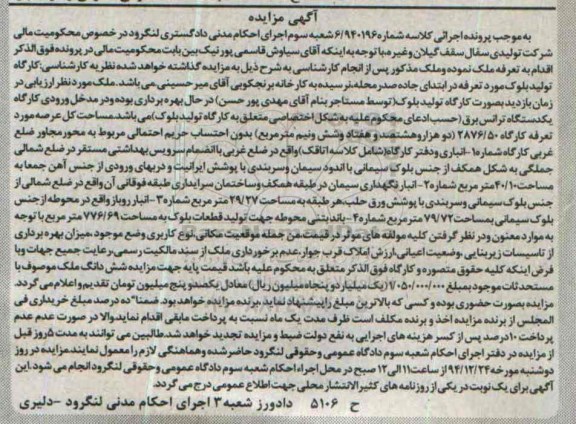 آگهی مزایده
به موجب پرونده اجرائی کلاسه شماره ۶/۹۴۰۱۹۶ شعبه سوم اجرای احکام مدنی دادگستری لنگرود در خصوص محکومیت مالی
شرکت تولیدی سفال سقف گیلان وغیره، با توجه به اینکه آقای سیاوش قاسمی پور تیک بین بابت محکومیت مالی در پرونده فوق الذکر
اقدام به تعرفه ملک نموده وملک مذکور پس از انجام کارشناسی به شرح ذیل به مزایده گذاشته خواهد شده نظریه کارشناسی: کارگاه
تولید بلوک مورد تعرفه در ابتدای جاده صدر محله، نرسیده به کارخانه برنجکوبی آقای میرحسینی می باشد. ملک مورد نظر ارزیابی در
زمان بازدید بصورت کارگاه تولید بلوک (توسط مستاجر بنام آقای مهدی پور حسن) در حال بهره برداری بوده ودر مدخل ورودی کارگاه
یکدستگاه ترانس برق (حسب ادعای محکوم علیه به شکل اختصاصی متعلق به کارگاه تولید بلوک) می باشد. مساحت کل عرصه مورد
تعرفه کارگاه ۲۸۷۶/۵۰ (دو هزار وهشتصد و هفتاد وشش ونیم متر مربع) بدون احتساب حریم احتمالی مربوط به محور مجاور ضلع
غربی کارگاه شماره ۱- انباری ودفتر کارگاه (شامل کلاسه اتاقک) واقع در ضلع غربی باانضمام سرویس بهداشتی مستقر در ضلع شمالی
جملگی به شکل همکف از جنس بلوک سیمانی با اندود سیمان وسربندی با پوشش ایرانیت و دربهای ورودی از جنس آهن جمعا به
مساحت ۴۰/۱۰ متر مربع شماره ۲- انبار نگهداری سیمان در طبقه همکف وساختمان سرایداری طبقه فوقانی آن واقع در ضلع شمالی از
جنس بلوک سیمانی وسربندی با پوشش ورق حلب، هر طبقه به مساحت ۲۹/۲۷ متر مربع شماره ۳- انبار روباز واقع در محوطه از جنس
بلوک سیمانی بمساحت ۷۹/۷۲ متر مربع شماره ۴- باند بتنی محوطه جهت تولید قطعات بلوک به مساحت ۷۷۶/۶۹ متر مربع با توجه
به موارد معنون ودر نظر گرفتن کلیه مولفه های موثر در قیمت، من جمله موقعیت مکانی، نوع کاربری وضع موجود، میزان بهره برداری
از تاسیسات زیربنایی، وضعیت اعیانی، ارزش املاک قرب جوار، عدم برخورداری ملک از سند مالکیت رسمی، رعایت جمیع جهات وبا
فرض اینکه کلیه حقوق متصوره و کارگاه فوق الذکر متعلق به محکوم علیه باشد قیمت پایه جهت مزایده شش دانگ ملک موصوف با
مستحدثات موجود بمبلغ ۱/۰۵۰/۰۰۰/۰۰۰ (یک میلیارد و پنجاه میلیون ریال) معادل یکصد و پنج میلیون تومان تقدیم و اعلام می گردد.
مزایده بصورت حضوری بوده و کسی که بالاترین مبلغ را پیشنهاد نماید، برنده مزایده خواهد بود. ضمنا" ده درصد مبلغ خریداری فی
المجلس از برنده مزایده اخذ و برنده مکلف است ظرف مدت یک ماه نسبت به پرداخت مابقی اقدام نماید والا در صورت عدم
پرداخت ۱۰ درصد پس از کسر هزینه های اجرایی به نفع دولت ضبط و مزایده تجدید خواهد شد. طالبین می توانند به مدت ۵ روز قبل
از مزایده در دفتر اجرای احکام شعبه سوم دادگاه عمومی و حقوقی لنگرود حاضر شده وهماهنگی لازم را معمول نمایند. مزایده در روز
دوشنبه مورخه ۹۴/۱۲/۲۴ از ساعت ۱۱ الی ۱۲ صبح در محل اجراء احکام شعبه سوم دادگاه عمومی و حقوقی لنگرود انجام می شود. این
آگهی برای یک نوبت در یکی از روزنامه های کثیرالانتشار محلی جهت اطلاع عمومی درج می گردد.
ح ۵۱۰۶ دادورز شعبه ۳ اجرای احکام مدنی لنگرود - دلیری